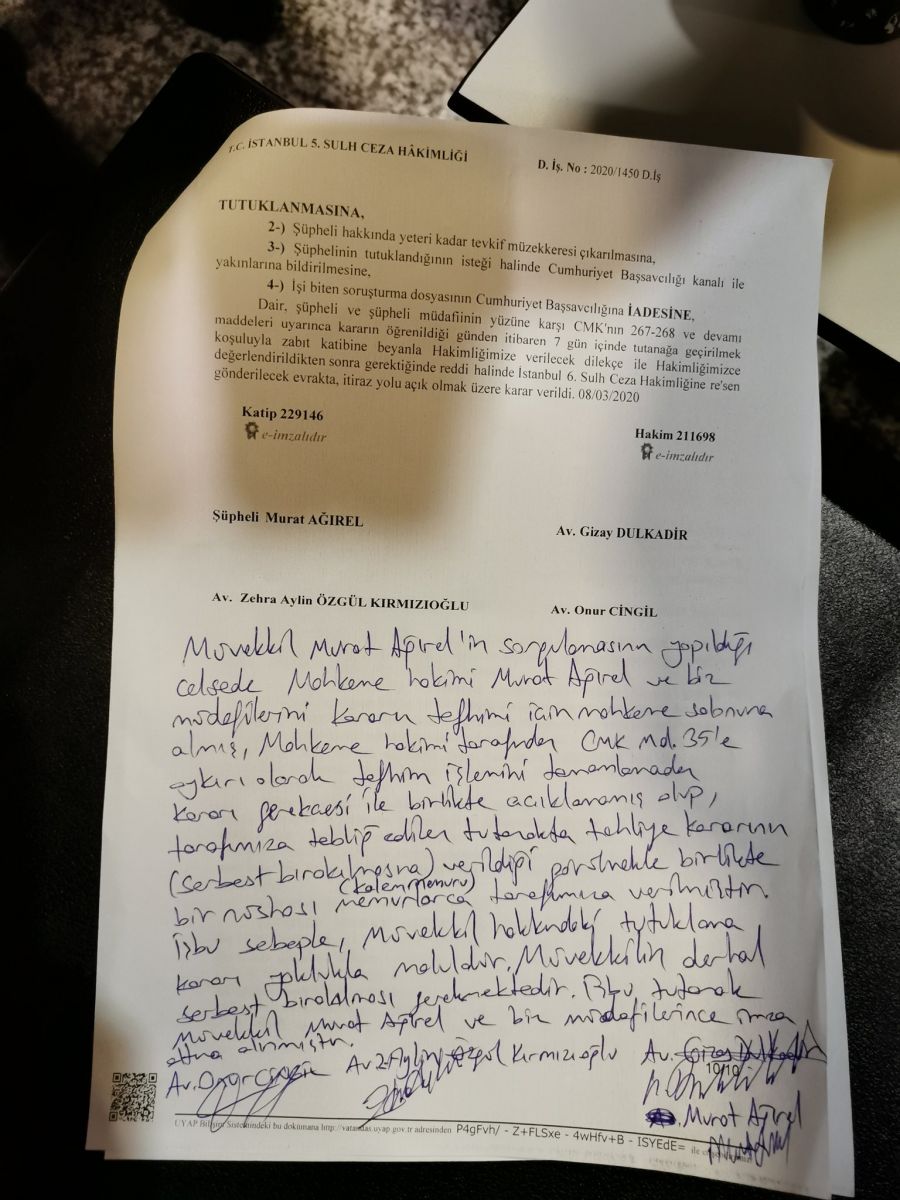 T.C. İSTANBUL 5. SULH CEZA HÂKİMLİĞİ
D. İş. No : 2020/1450 D.İş
TUTUKLANMASINA,
2-) Şüpheli hakkında yeteri kadar tevkif müzekkeresi çıkarılmasına,
3-) Şüphelinin tutuklandığının isteği halinde Cumhuriyet Başsavcılığı kanalı ile
yakınlarına bildirilmesine,
4-) İşi biten soruşturma dosyasının Cumhuriyet Başsavcılığına İADESİNE,
Dair, şüpheli ve şüpheli müdafiinin yüzüne karşı CMK'nın 267-268 ve devamı
maddeleri uyarınca kararın öğrenildiği günden itibaren 7 gün içinde tutanağa geçirilmek
koşuluyla zabıt katibine beyanla Hakimliğimize verilecek dilekçe ile Hakimliğimizce
değerlendirildikten sonra gerektiğinde reddi halinde İstanbul 6. Sulh Ceza Hakimliğine re'sen
gönderilecek evrakta, itiraz yolu açık olmak üzere karar verildi. 08/03/2020
Katip 229146
e-imzalıdır
Hakim 211698
e-imzalıdır
Şüpheli Murat AĞIREL
Av. Gizay DULKADİR
Av. Zehra Aylin ÖZGÜL KIRMIZIOĞLU
Av. Onur CİNGİL
Müvekkil Murat Ağırel'in sorgulamasının yapıldığı
celsede Mahkeme hakimi Murat Ağırel ve biz
müdafilerini kararın tefhimi için mahkeme salonuna
almış, Mahkeme hakimi tarafından CMK Md. 35'e
aykırı olarak tefhim işlemini tamamlamadan
kararı gerekçesi ile birlikte açıklamamış olup,
tarafımıza tebliğ edilen tutanakta tahliye kararının
(serbest bırakılmasına) verildiği görülmekle birlikte
bir nüshası memurlarca (kalem memuru) tarafımıza verilmiştir.
İşbu sebeple, Müvekkil hakkındaki tutuklama
kararı yoklukla maluldür. Müvekkilin derhal
serbest bırakılması gerekmektedir. İşbu tutanak
Müvekkil Murat Ağırel ve biz müdafilerince imza
altına alınmıştır.
Av. Onur Cingil Av. Z. Aylin Özgül Kırmızıoğlu Av. Gizay Dulkadir
10/10
Murat Ağırel
UYAP Bilişim Sistemindeki bu dokümana http://vatandas.uyap.gov.tr adresinden P4gFvh/ - Z+FLSxe - 4wHfv+B - ISYEdE= ile